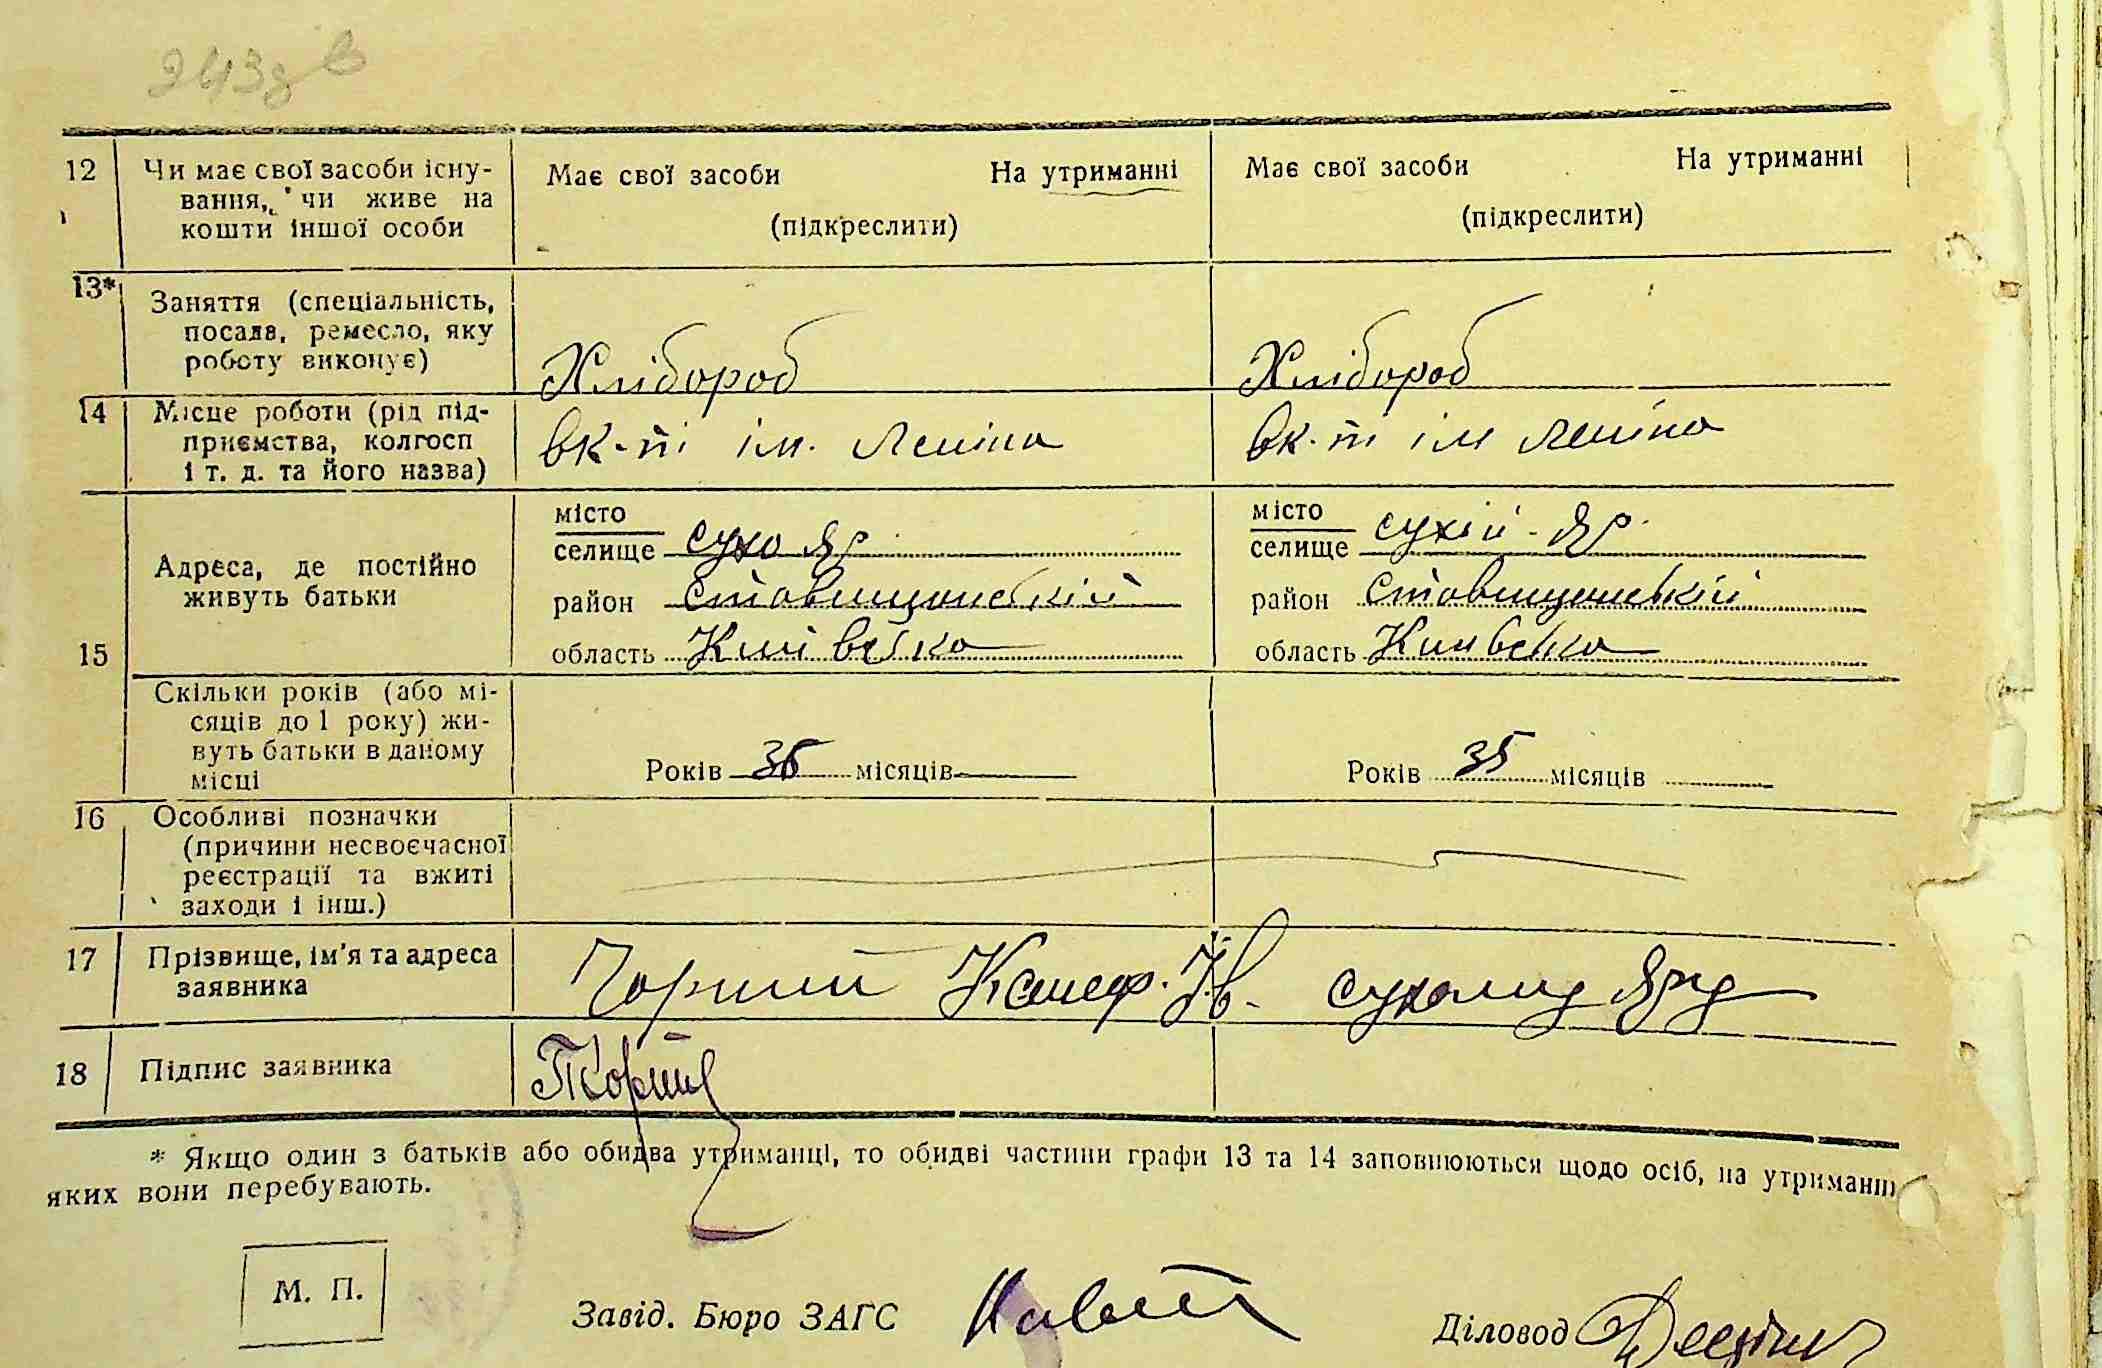 243 зв
12 Чи має свої засоби існу-
вання, чи живе на
кошти іншої особи
Має свої засоби На утриманні
(підкреслити)
Має свої засоби На утриманні
(підкреслити)
13* Заняття (спеціальність,
посада, ремесло, яку
роботу виконує)
Хлібороб
Хлібороб
14 Місце роботи (рід під-
приємства, колгосп
і т. д. та його назва)
вк-ті ім. Леніна
вк-ті ім Леніна
15 Адреса, де постійно
живуть батьки
місто
селище Сухо Яр
район Ставищанській
область Київська
місто
селище Сухій-Яр.
район Ставищанській
область Київська
Скільки років (або мі-
сяців до 1 року) жи-
вуть батьки в даному
місці
Років 36 місяців
Років 35 місяців
16 Особливі позначки
(причини несвоєчасної
реєстрації та вжиті
заходи і інш.)
17 Прізвище, ім'я та адреса
заявника
Чорний Ів. Сухому Яру
18 Підпис заявника
* Якщо один з батьків або обидва утриманці, то обидві частини графи 13 та 14 заповнюються щодо осіб, на утриманні
яких вони перебувають.
М. П.
Завід. Бюро ЗАГС
Діловод